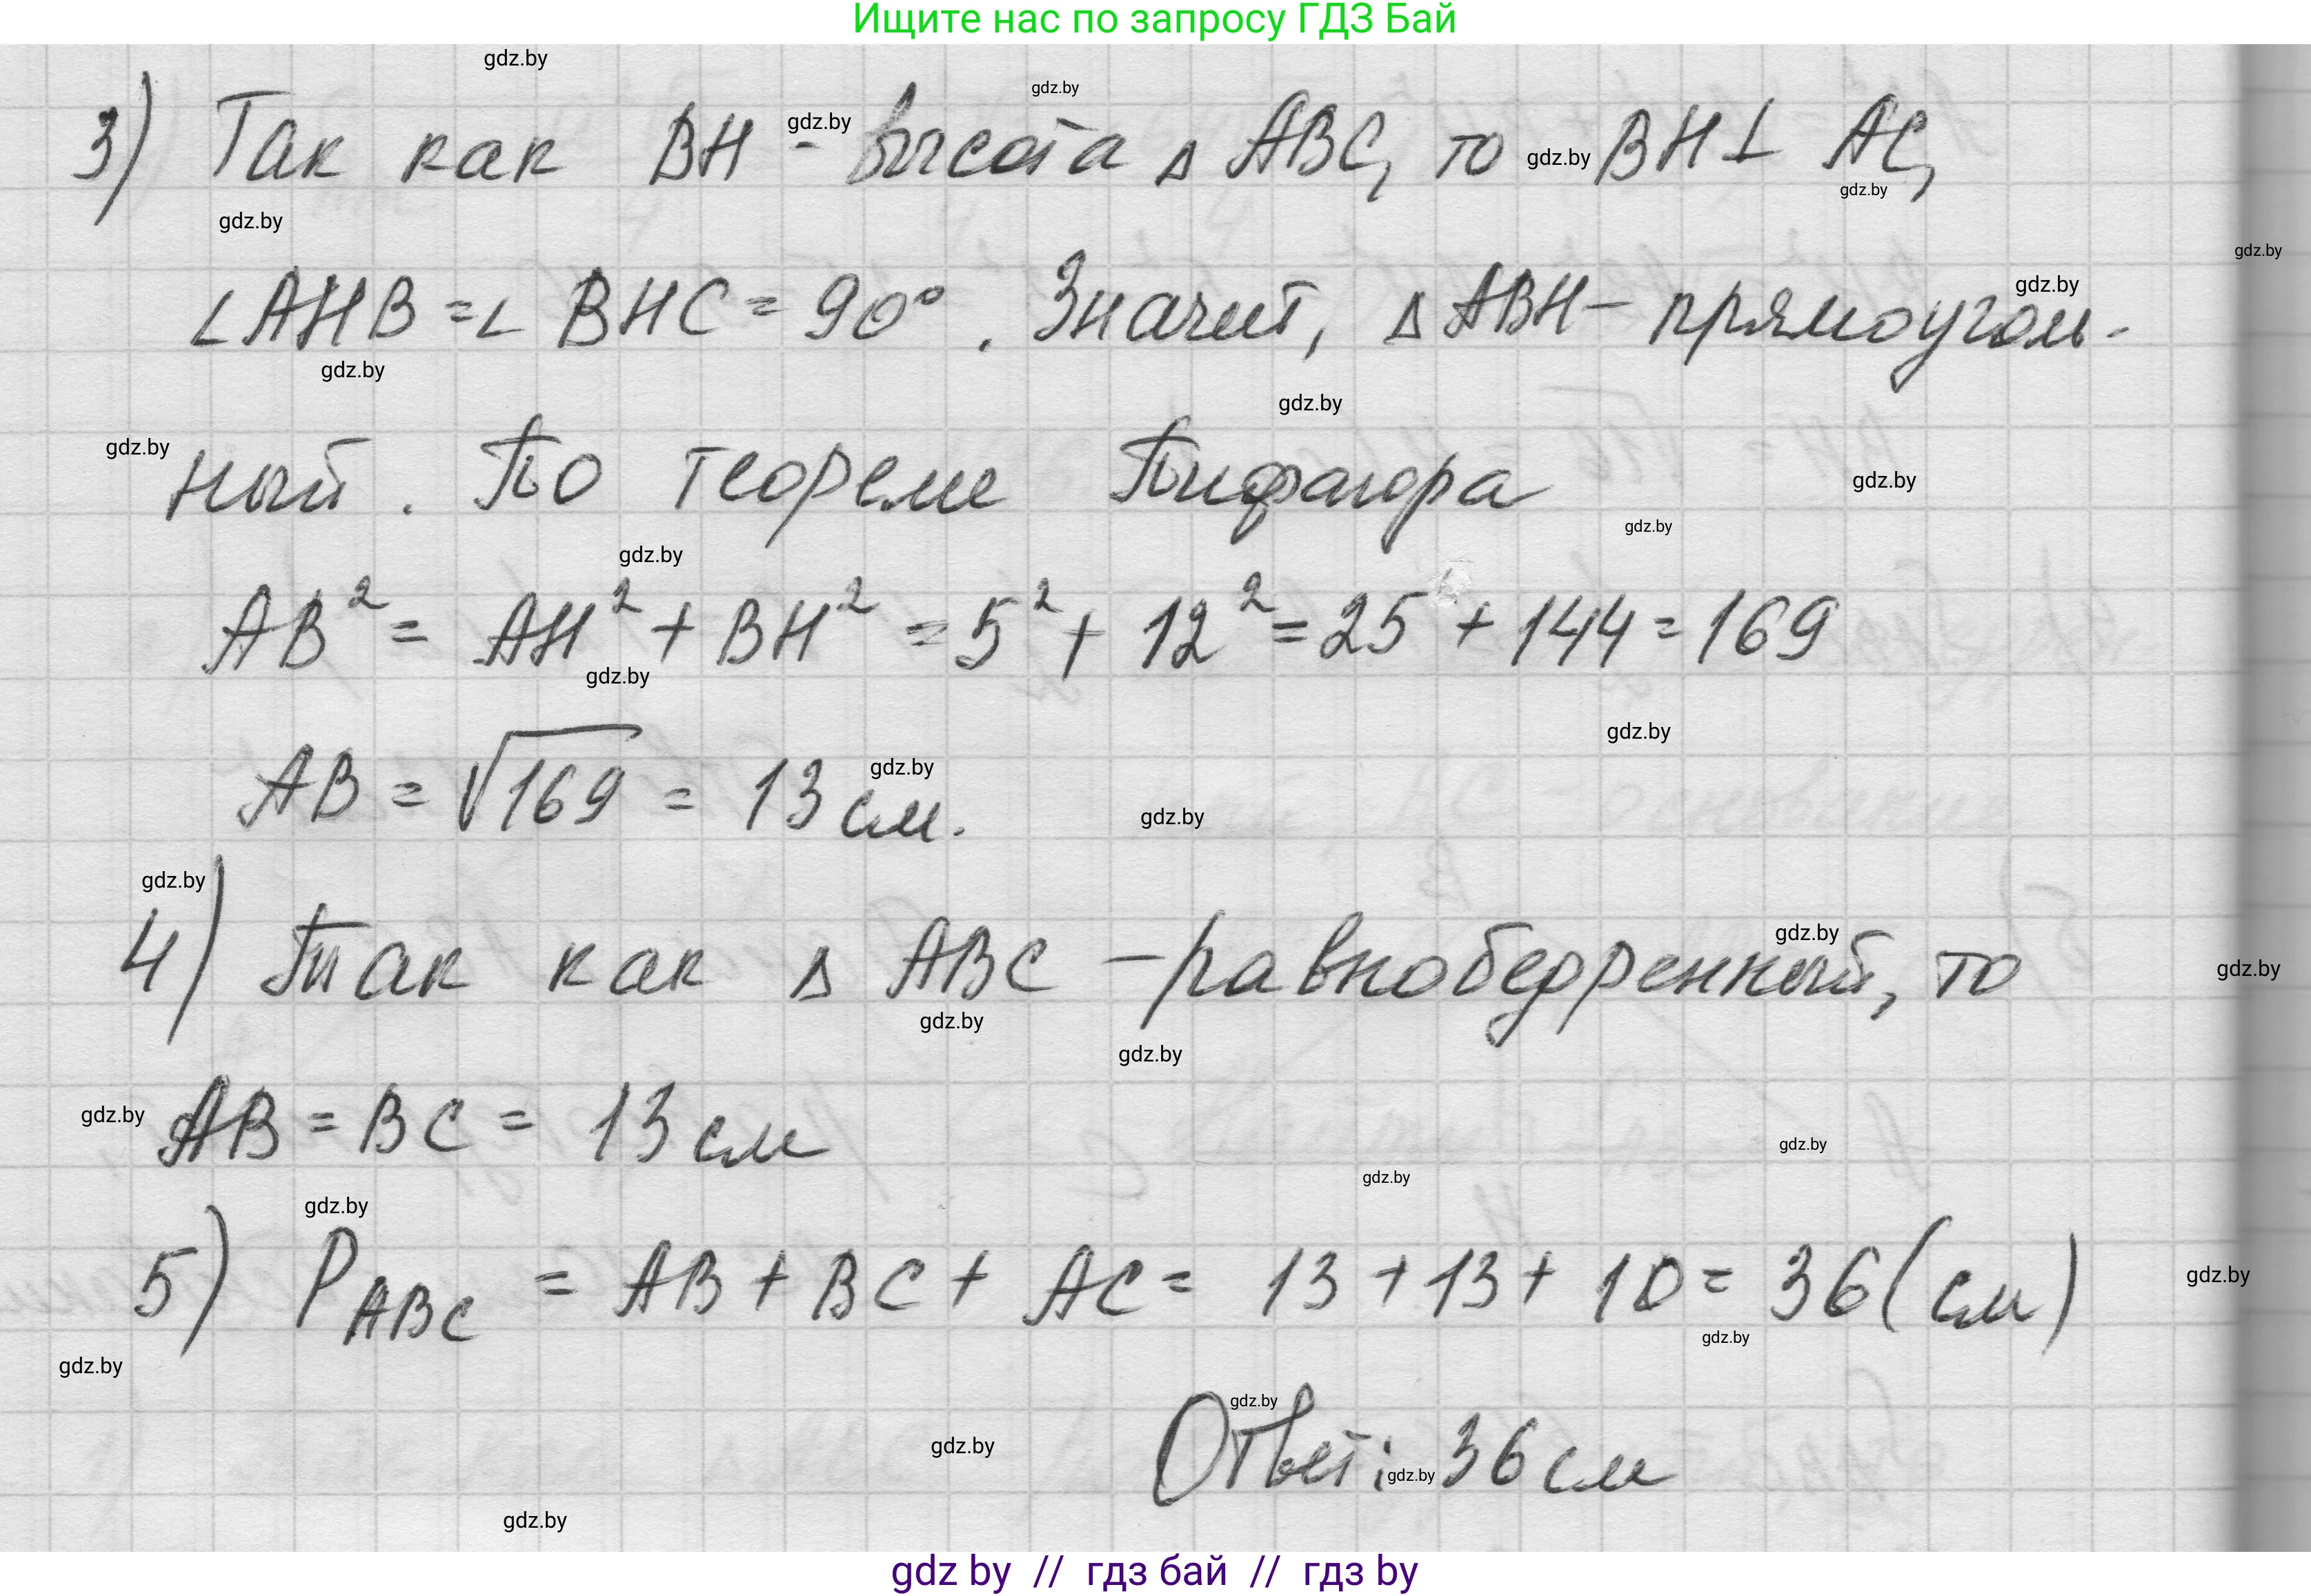 Ищите нас по запросу ГДЗ Бай
gdz.by
gdz.by
3) Так как BH - высота △ ABC, то BH ⊥ AC,
gdz.by gdz.by gdz.by
gdz.by
gdz.by
gdz.by
∠AHB = ∠ BHC = 90°. Значит, △ ABH – прямоуголь-
gdz.by
gdz.by
gdz.by
ный. По теореме Пифагора
gdz.by
gdz.by
gdz.by
AB² = AH² + BH² = 5² + 12² = 25 + 144 = 169
gdz.by
gdz.by
AB = √169 = 13 см.
gdz.by
gdz.by
gdz.by
4) Так как △ ABC – равнобедренный, то
gdz.by
gdz.by
gdz.by
gdz.by
AB = BC = 13 см
gdz.by
gdz.by
gdz.by
gdz.by
5) P ABC = AB + BC + AC = 13 + 13 + 10 = 36 (см)
gdz.by
gdz.by
gdz.by
gdz.by
Ответ: 36 см
gdz.by
gdz.by
gdz.by
gdz by // гдз бай // гдз by